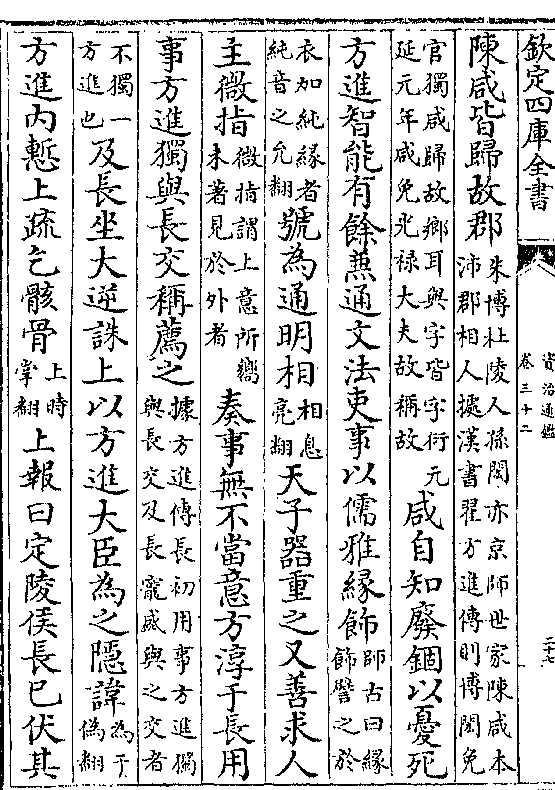 欽定四庫全書
資治通鑑
卷三十二
二十七
陳咸皆歸故郡朱博杜陵人孫閎亦京師世家陳咸本沛郡相人據漢書翟方進傳則博閎免
官獨咸歸故鄉耳與字皆字衍元延元年咸免光禄大夫故稱故咸自知廢錮以憂死
方進智能有餘兼通文法吏事以儒雅緣飾師古曰緣飾譬之於
衣加純緣者純音之允翻號為通明相相息亮翻天子器重之又善求人
主微指微指謂上意所嚮未著見於外者奏事無不當意方淳于長用
事方進獨與長交稱薦之據方進傳長初用事方進獨與長交及長寵盛與之交者
不獨一方進也及長坐大逆誅上以方進大臣為之隱諱為于偽翻
方進内慙上疏乞骸骨上時掌翻上報曰定陵侯長已伏其